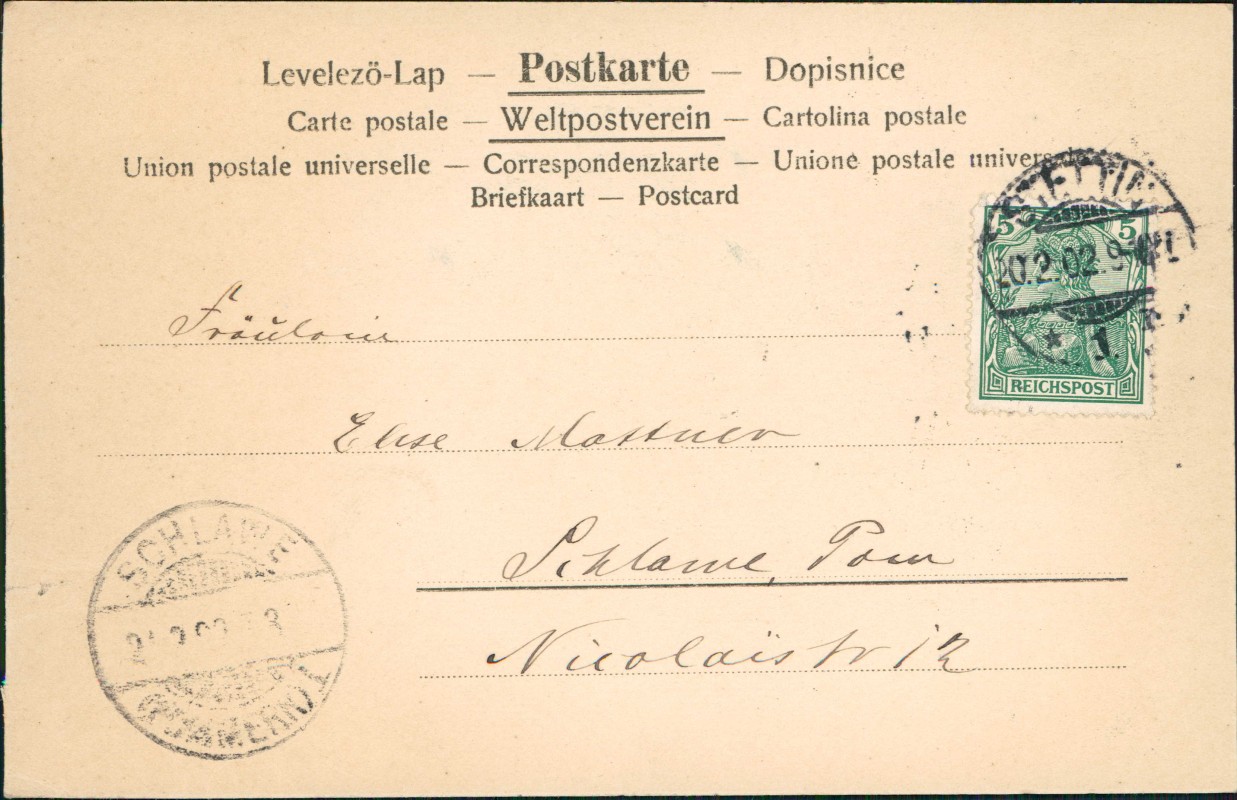 Levelező-Lap — Postkarte — Dopisnice
Carte postale — Weltpostverein — Cartolina postale
Union postale universelle — Correspondenzkarte — Unione postale
Briefkaart — Postcard
STETTIN
20.2.02.9
* 1.
5 5
REICHSPOST
Fräulein
Elise
Schlawe, Pom
Nicolaistr 12
SCHLAWE
(POMMERN) 1